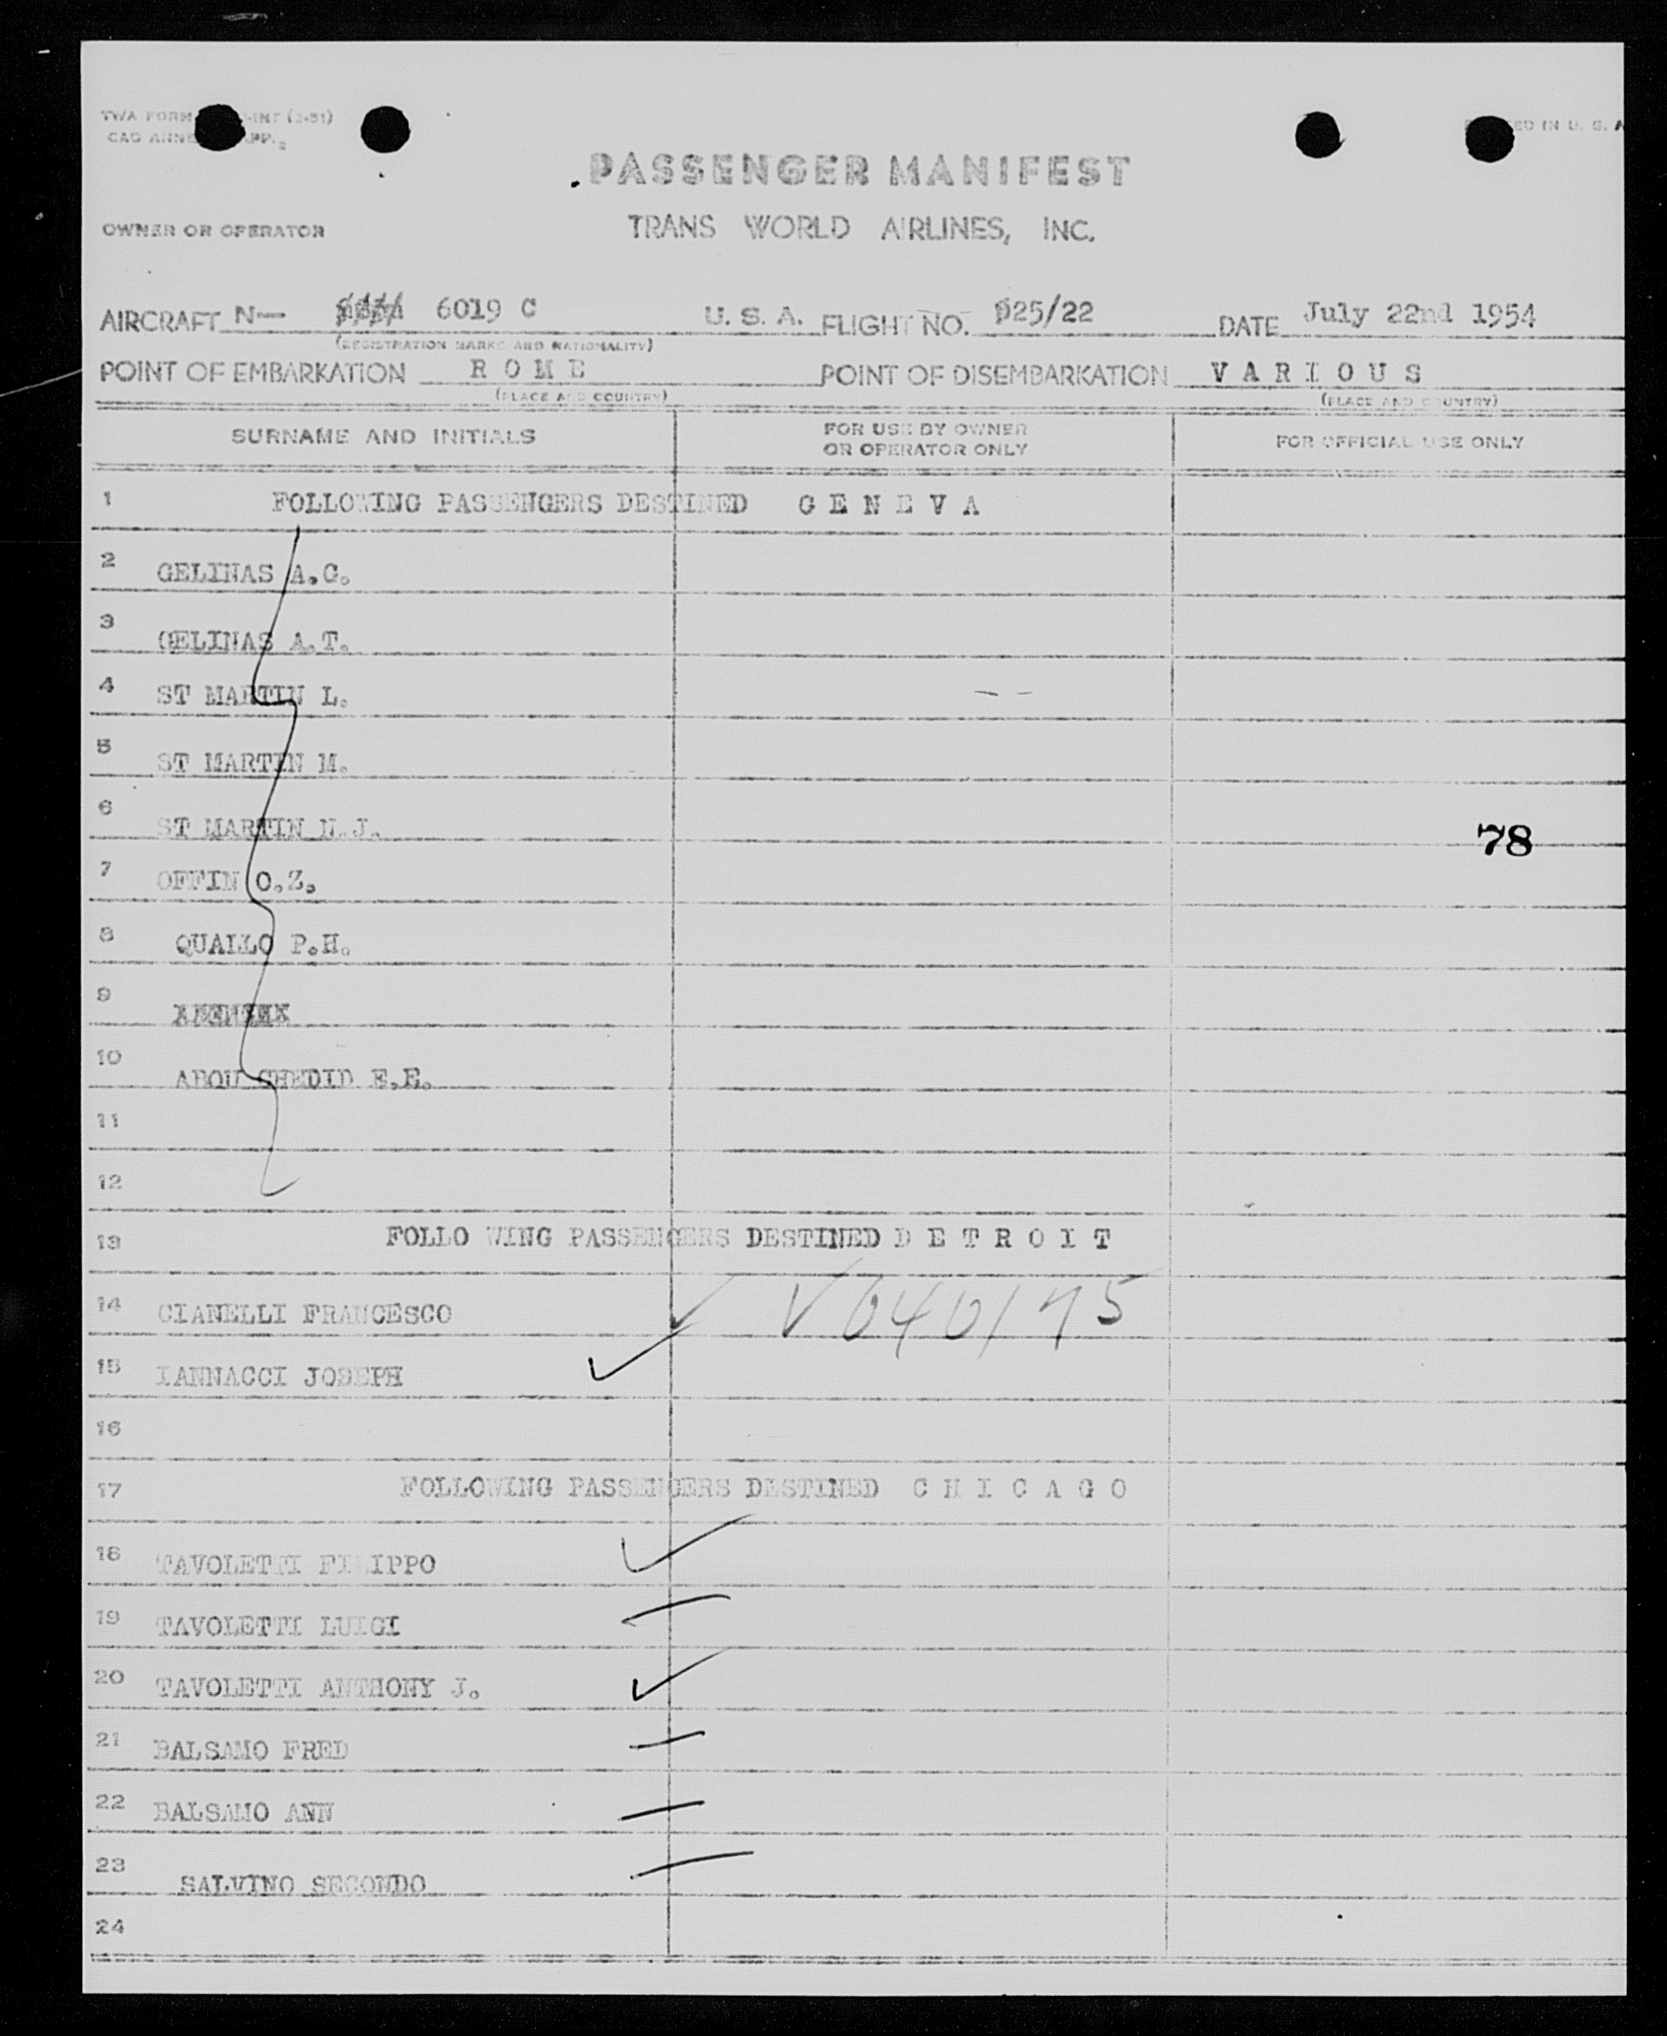 TWA FORM INT (3-51)
CAO ANNE APP. 2
PRINTED IN U. S. A
PASSENGER MANIFEST
OWNER OR OPERATOR TRANS WORLD AIRLINES, INC.
AIRCRAFT N— 6019 C U. S. A. FLIGHT NO. 925/22 DATE July 22nd 1954
(REGISTRATION MARKS AND NATIONALITY)
POINT OF EMBARKATION R O M E POINT OF DISEMBARKATION V A R I O U S
(PLACE AND COUNTRY) (PLACE AND COUNTRY)
SURNAME AND INITIALS FOR USE BY OWNER OR OPERATOR ONLY FOR OFFICIAL USE ONLY
1 FOLLOWING PASSENGERS DESTINED G E N E V A
2 GELINAS A.C.
3 GELINAS A.T.
4 ST MARTIN L.
5 ST MARTIN M.
6 ST MARTIN M.J. 78
7 OFFIN O.Z.
8 QUALLO P.H.
9
10 ABOU CHEDID E.E.
11
12
13 FOLLO WING PASSENGERS DESTINED D E T R O I T
14 CIANELLI FRANCESCO V040175
15 IANNACCI JOSEPH
16
17 FOLLOWING PASSENGERS DESTINED C H I C A G O
18 TAVOLETTI FILIPPO
19 TAVOLETTI LUIGI
20 TAVOLETTI ANTHONY J.
21 BALSAMO FRED
22 BALSAMO ANN
23 SALVINO SECONDO
24